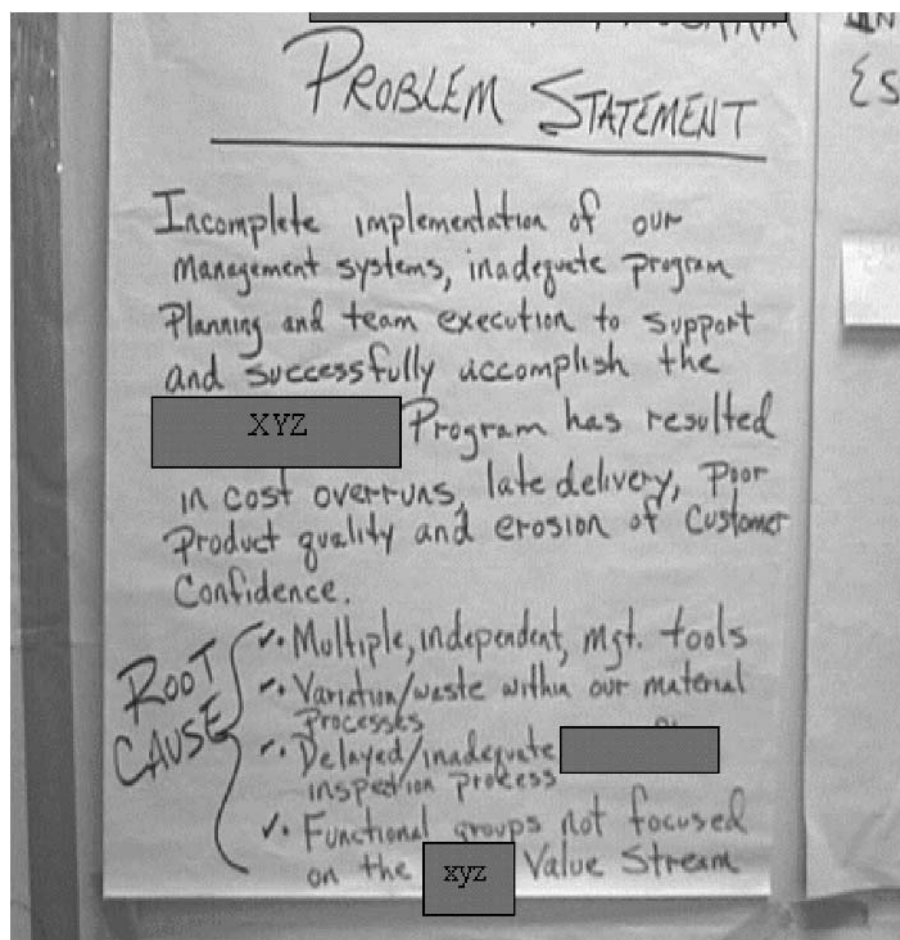 PROGRAM
PROBLEM STATEMENT
Incomplete implementation of our
Management systems, inadequate program
Planning and team execution to support
and successfully accomplish the
XYZ Program has resulted
in cost overruns, late delivery, Poor
Product quality and erosion of Customer
Confidence.
ROOT CAUSE
✓• Multiple, independent, mgt. tools
✓• Variation/waste within our material
Processes
✓• Delayed/inadequate
inspection process
✓• Functional groups not focused
on the xyz Value Stream